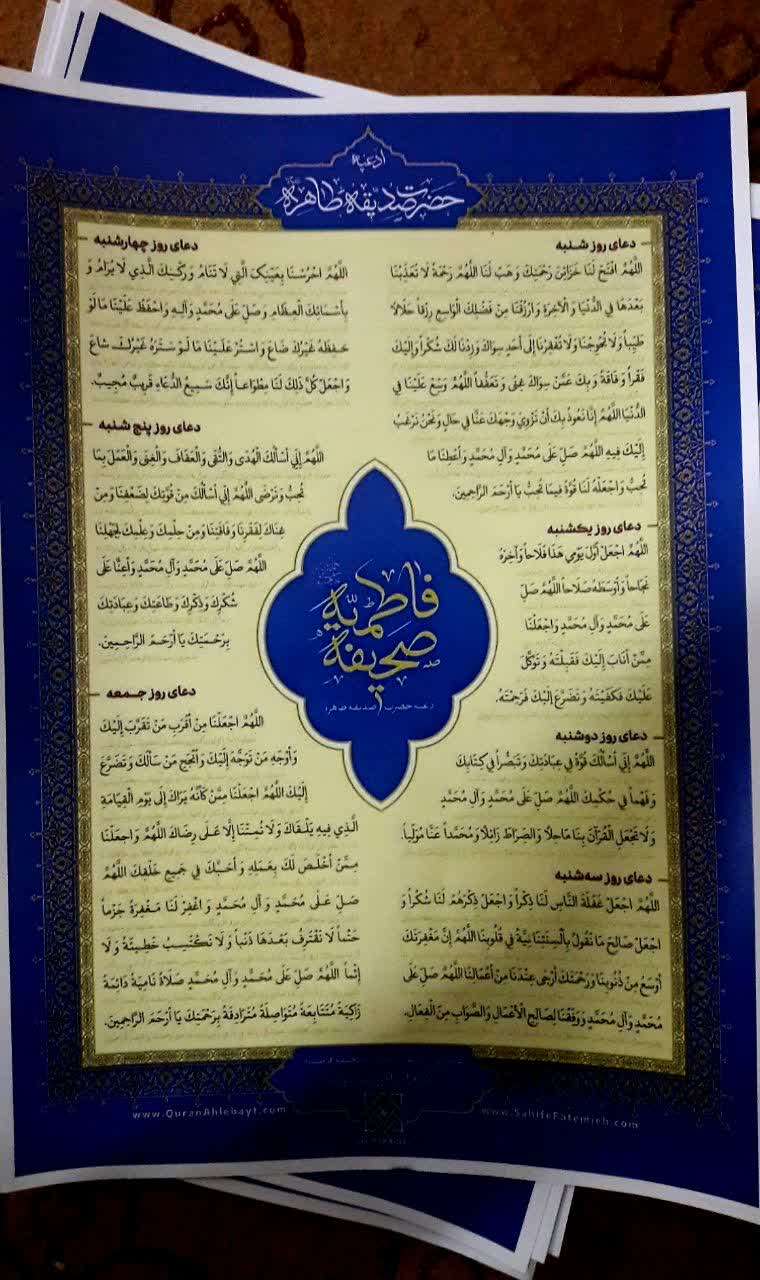 ادعیه
حضرت صدیقه طاهره
دعای روز شنبه
اللَّهُمَّ افْتَحْ لَنَا خَزَائِنَ رَحْمَتِكَ وَهَبْ لَنَا اللَّهُمَّ رَحْمَةً لَا تُعَذِّبْنَا
بَعْدَهَا فِي الدُّنْيَا وَالْآخِرَةِ وَارْزُقْنَا مِنْ فَضْلِكَ الْوَاسِعِ رِزْقاً حَلَالًا
طَيِّباً وَلَا تُحْوِجْنَا وَلَا تُفْقِرْنَا إِلَى أَحَدٍ سِوَاكَ وَزِدْنَا لَكَ شُكْراً وَإِلَيْكَ
فَقْراً وَفَاقَةً وَبِكَ عَمَّنْ سِوَاكَ غِنًى وَتَعَفُّفاً اللَّهُمَّ وَسِّعْ عَلَيْنَا فِي
الدُّنْيَا اللَّهُمَّ إِنَّا نَعُوذُ بِكَ أَنْ تَزْوِيَ وَجْهَكَ عَنَّا فِي حَالٍ وَنَحْنُ نَرْغَبُ
إِلَيْكَ فِيهِ اللَّهُمَّ صَلِّ عَلَى مُحَمَّدٍ وَآلِ مُحَمَّدٍ وَأَعْطِنَا مَا
تُحِبُّ وَاجْعَلْهُ لَنَا قُوَّةً فِيمَا تُحِبُّ يَا أَرْحَمَ الرَّاحِمِينَ.
دعای روز یکشنبه
اللَّهُمَّ اجْعَلْ أَوَّلَ يَوْمِي هَذَا فَلَاحاً وَآخِرَهُ
نَجَاحاً وَأَوْسَطَهُ صَلَاحاً اللَّهُمَّ صَلِّ
عَلَى مُحَمَّدٍ وَآلِ مُحَمَّدٍ وَاجْعَلْنَا
مِمَّنْ أَنَابَ إِلَيْكَ فَقَبِلْتَهُ وَتَوَكَّلَ
عَلَيْكَ فَكَفَيْتَهُ وَتَضَرَّعَ إِلَيْكَ فَرَحِمْتَهُ.
دعای روز دوشنبه
اللَّهُمَّ إِنِّي أَسْأَلُكَ قُوَّةً فِي عِبَادَتِكَ وَتَبَصُّراً فِي كِتَابِكَ
وَفَهْماً فِي حُكْمِكَ اللَّهُمَّ صَلِّ عَلَى مُحَمَّدٍ وَآلِ مُحَمَّدٍ
وَلَا تَجْعَلِ الْقُرْآنَ بِنَا مَاحِلًا وَالصِّرَاطَ زَائِلًا وَمُحَمَّداً عَنَّا مُوَلِّياً.
دعای روز سه‌شنبه
اللَّهُمَّ اجْعَلْ غَفْلَةَ النَّاسِ لَنَا ذِكْراً وَاجْعَلْ ذِكْرَهُمْ لَنَا شُكْراً وَ
اجْعَلْ صَالِحَ مَا نَقُولُ بِأَلْسِنَتِنَا نِيَّةً فِي قُلُوبِنَا اللَّهُمَّ إِنَّ مَغْفِرَتَكَ
أَوْسَعُ مِنْ ذُنُوبِنَا وَرَحْمَتَكَ أَرْجَى عِنْدَنَا مِنْ أَعْمَالِنَا اللَّهُمَّ صَلِّ عَلَى
مُحَمَّدٍ وَآلِ مُحَمَّدٍ وَوَفِّقْنَا لِصَالِحِ الْأَعْمَالِ وَالصَّوَابِ مِنَ الْفِعَالِ.
دعای روز چهارشنبه
اللَّهُمَّ احْرُسْنَا بِعَيْنِكَ الَّتِي لَا تَنَامُ وَرُكْنِكَ الَّذِي لَا يُرَامُ وَ
بِأَسْمَائِكَ الْعِظَامِ وَصَلِّ عَلَى مُحَمَّدٍ وَآلِهِ وَاحْفَظْ عَلَيْنَا مَا لَوْ
حَفِظَهُ غَيْرُكَ ضَاعَ وَاسْتُرْ عَلَيْنَا مَا لَوْ سَتَرَهُ غَيْرُكَ شَاعَ
وَاجْعَلْ كُلَّ ذَلِكَ لَنَا مِطْوَاعاً إِنَّكَ سَمِيعُ الدُّعَاءِ قَرِيبٌ مُجِيبٌ.
دعای روز پنج شنبه
اللَّهُمَّ إِنِّي أَسْأَلُكَ الْهُدَى وَالتُّقَى وَالْعَفَافَ وَالْغِنَى وَالْعَمَلَ بِمَا
تُحِبُّ وَتَرْضَى اللَّهُمَّ إِنِّي أَسْأَلُكَ مِنْ قُوَّتِكَ لِضَعْفِنَا وَمِنْ
غِنَاكَ لِفَقْرِنَا وَفَاقَتِنَا وَمِنْ حِلْمِكَ وَعِلْمِكَ لِجَهْلِنَا
اللَّهُمَّ صَلِّ عَلَى مُحَمَّدٍ وَآلِ مُحَمَّدٍ وَأَعِنَّا عَلَى
شُكْرِكَ وَذِكْرِكَ وَطَاعَتِكَ وَعِبَادَتِكَ
بِرَحْمَتِكَ يَا أَرْحَمَ الرَّاحِمِينَ.
دعای روز جمعه
اللَّهُمَّ اجْعَلْنَا مِنْ أَقْرَبِ مَنْ تَقَرَّبَ إِلَيْكَ
وَأَوْجَهِ مَنْ تَوَجَّهَ إِلَيْكَ وَأَنْجَحِ مَنْ سَأَلَكَ وَتَضَرَّعَ
إِلَيْكَ اللَّهُمَّ اجْعَلْنَا مِمَّنْ كَأَنَّهُ يَرَاكَ إِلَى يَوْمِ الْقِيَامَةِ
الَّذِي فِيهِ يَلْقَاكَ وَلَا تُمِتْنَا إِلَّا عَلَى رِضَاكَ اللَّهُمَّ وَاجْعَلْنَا
مِمَّنْ أَخْلَصَ لَكَ بِعَمَلِهِ وَأَحَبَّكَ فِي جَمِيعِ خَلْقِكَ اللَّهُمَّ
صَلِّ عَلَى مُحَمَّدٍ وَآلِ مُحَمَّدٍ وَاغْفِرْ لَنَا مَغْفِرَةً جَزْماً
حَتْماً لَا نَقْتَرِفُ بَعْدَهَا ذَنْباً وَلَا نَكْتَسِبُ خَطِيئَةً وَلَا
إِثْماً اللَّهُمَّ صَلِّ عَلَى مُحَمَّدٍ وَآلِ مُحَمَّدٍ صَلَاةً نَامِيَةً دَائِمَةً
زَاكِيَةً مُتَتَابِعَةً مُتَوَاصِلَةً مُتَرَادِفَةً بِرَحْمَتِكَ يَا أَرْحَمَ الرَّاحِمِينَ.
صحیفه
فاطمیه
ادعیه حضرت صدیقه طاهره
www.QuranAhlebayt.com
www.SahifeFatemieh.com